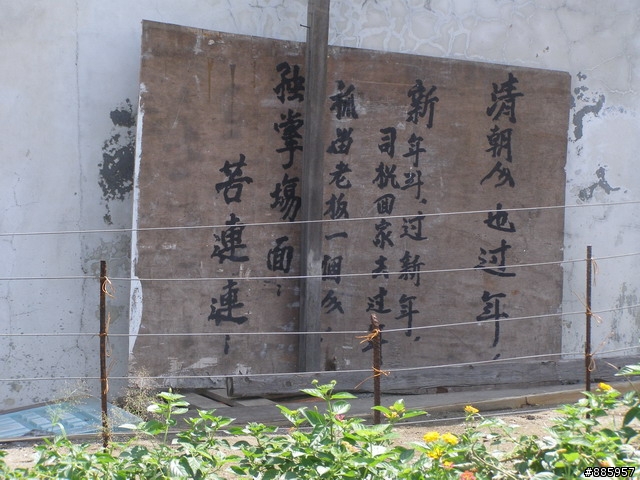 清朝人也过年，
新年到，过新年，
司机回家去过年
孤苗老板一個人，
独掌塲面，
苦連連，
#885957